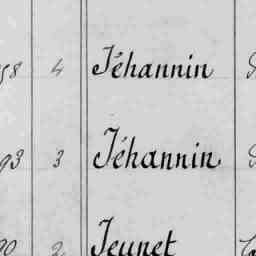 58 4 Jéhannin
93 3 Jéhannin
90 2 Jeunet